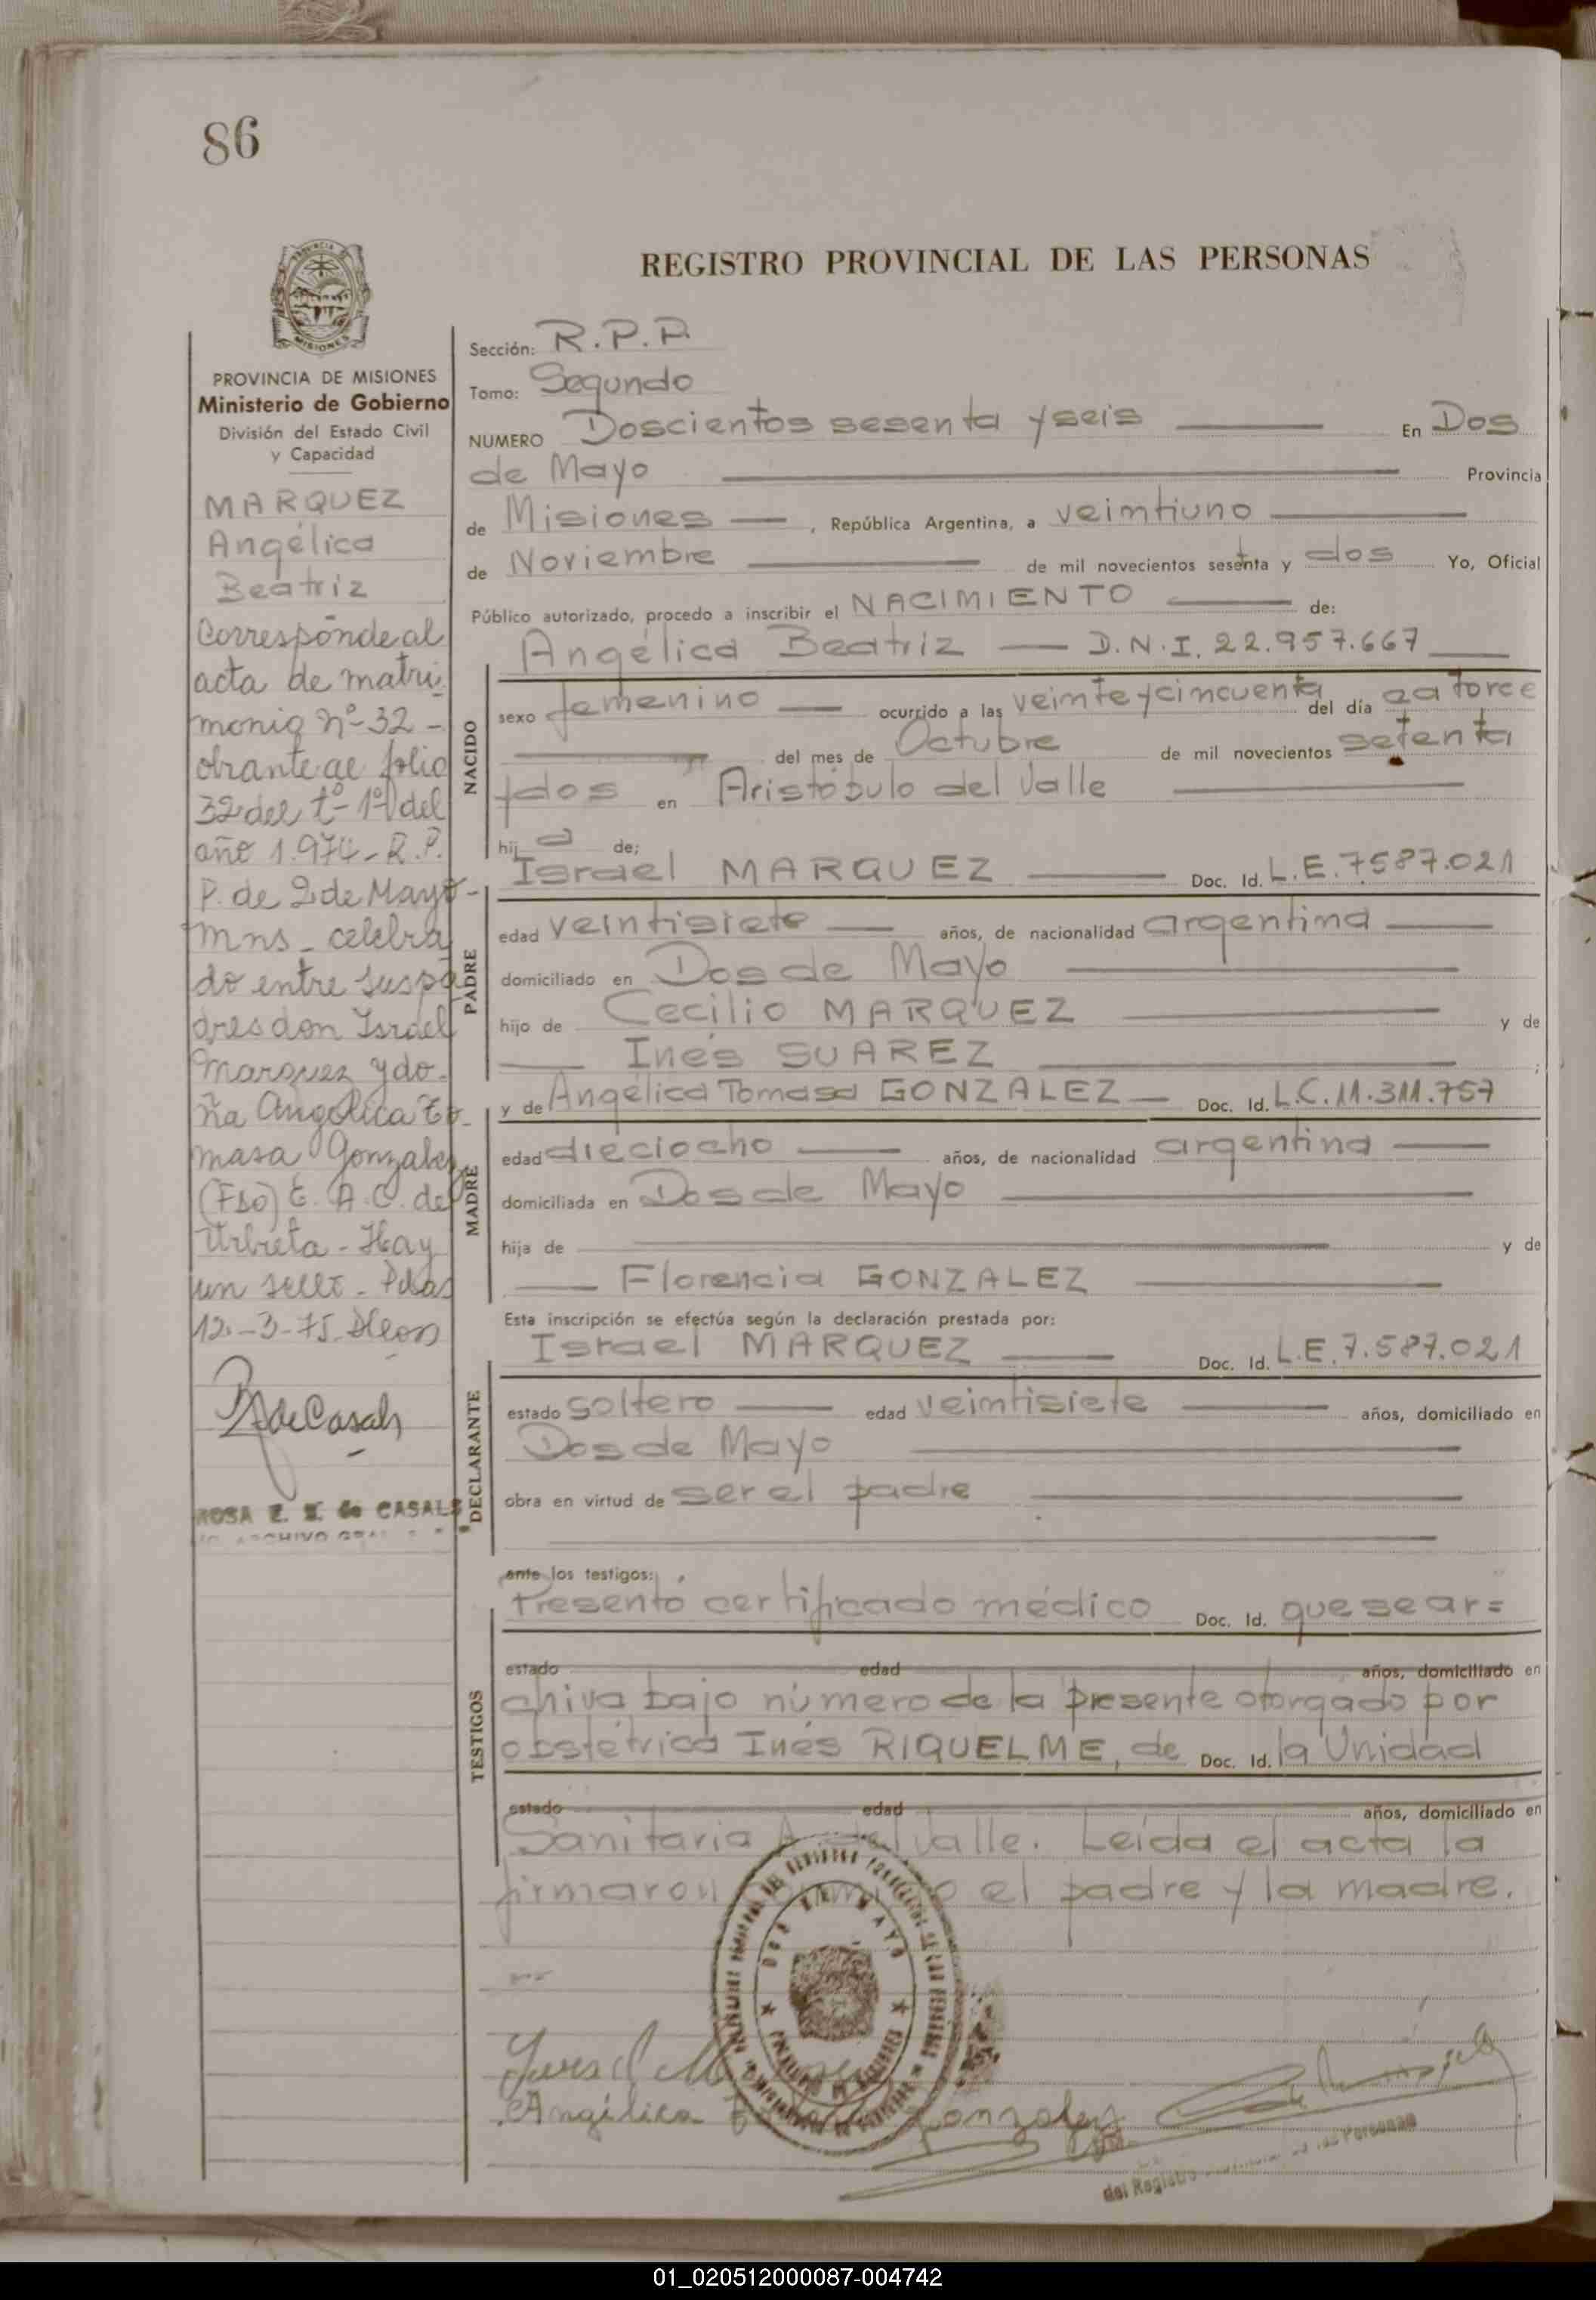 86
REGISTRO PROVINCIAL DE LAS PERSONAS
MISIONES
PROVINCIA DE MISIONES
Ministerio de Gobierno
División del Estado Civil
y Capacidad
MARQUEZ
Angélica
Beatriz
Corresponde al
acta de matri
monio nº-32-
obrante al folio
32 del tº-1º del
año 1.974-R.P.
P. de 2 de Mayo-
Mns-celebra
do entre sus pa
dres don Israel
Marquez y do-
ña Angélica To-
masa Gonzalez
(Fdo) E. A. C. de
Urbieta-Hay
un sello-Pdas
12-3-75.
R de Casals
ROSA E. de CASALS
Sección: R.P.P.
Tomo: Segundo
NUMERO Doscientos sesenta y seis En Dos
de Mayo Provincia
de Misiones , República Argentina, a veintiuno
de Noviembre de mil novecientos setenta y dos Yo, Oficial
Público autorizado, procedo a inscribir el NACIMIENTO de:
Angélica Beatriz D.N.I. 22.957.667
NACIDO
sexo femenino ocurrido a las veinte y cincuenta del día catorce
del mes de Octubre de mil novecientos setenta
y dos en Aristóbulo del Valle
hij a de;
Israel MARQUEZ Doc. Id. L.E.7587.021
PADRE
edad veintisiete años, de nacionalidad argentina
domiciliado en Dos de Mayo
hijo de Cecilio MARQUEZ y de
Inés SUAREZ ;
y de Angélica Tomasa GONZALEZ Doc. Id. L.C.11.311.757
MADRE
edad dieciocho años, de nacionalidad argentina
domiciliada en Dos de Mayo
hija de y de
Florencia GONZALEZ
Esta inscripción se efectúa según la declaración prestada por:
Israel MARQUEZ Doc. Id. L.E.7.587.021
DECLARANTE
estado soltero edad veintisiete años, domiciliado en
Dos de Mayo
obra en virtud de ser el padre
ante los testigos:
Presentó certificado médico Doc. Id. que se ar=
TESTIGOS
estado edad años, domiciliado en
chiva bajo número de la presente otorgado por
obstétrica Inés RIQUELME, de Doc. Id. la Unidad
estado edad años, domiciliado en
Sanitaria A. del Valle. Leída el acta la
firmaron el padre y la madre.
DOS DE MAYO
Israel
Angélica Gonzalez
del Registro de las Personas
01_020512000087-004742